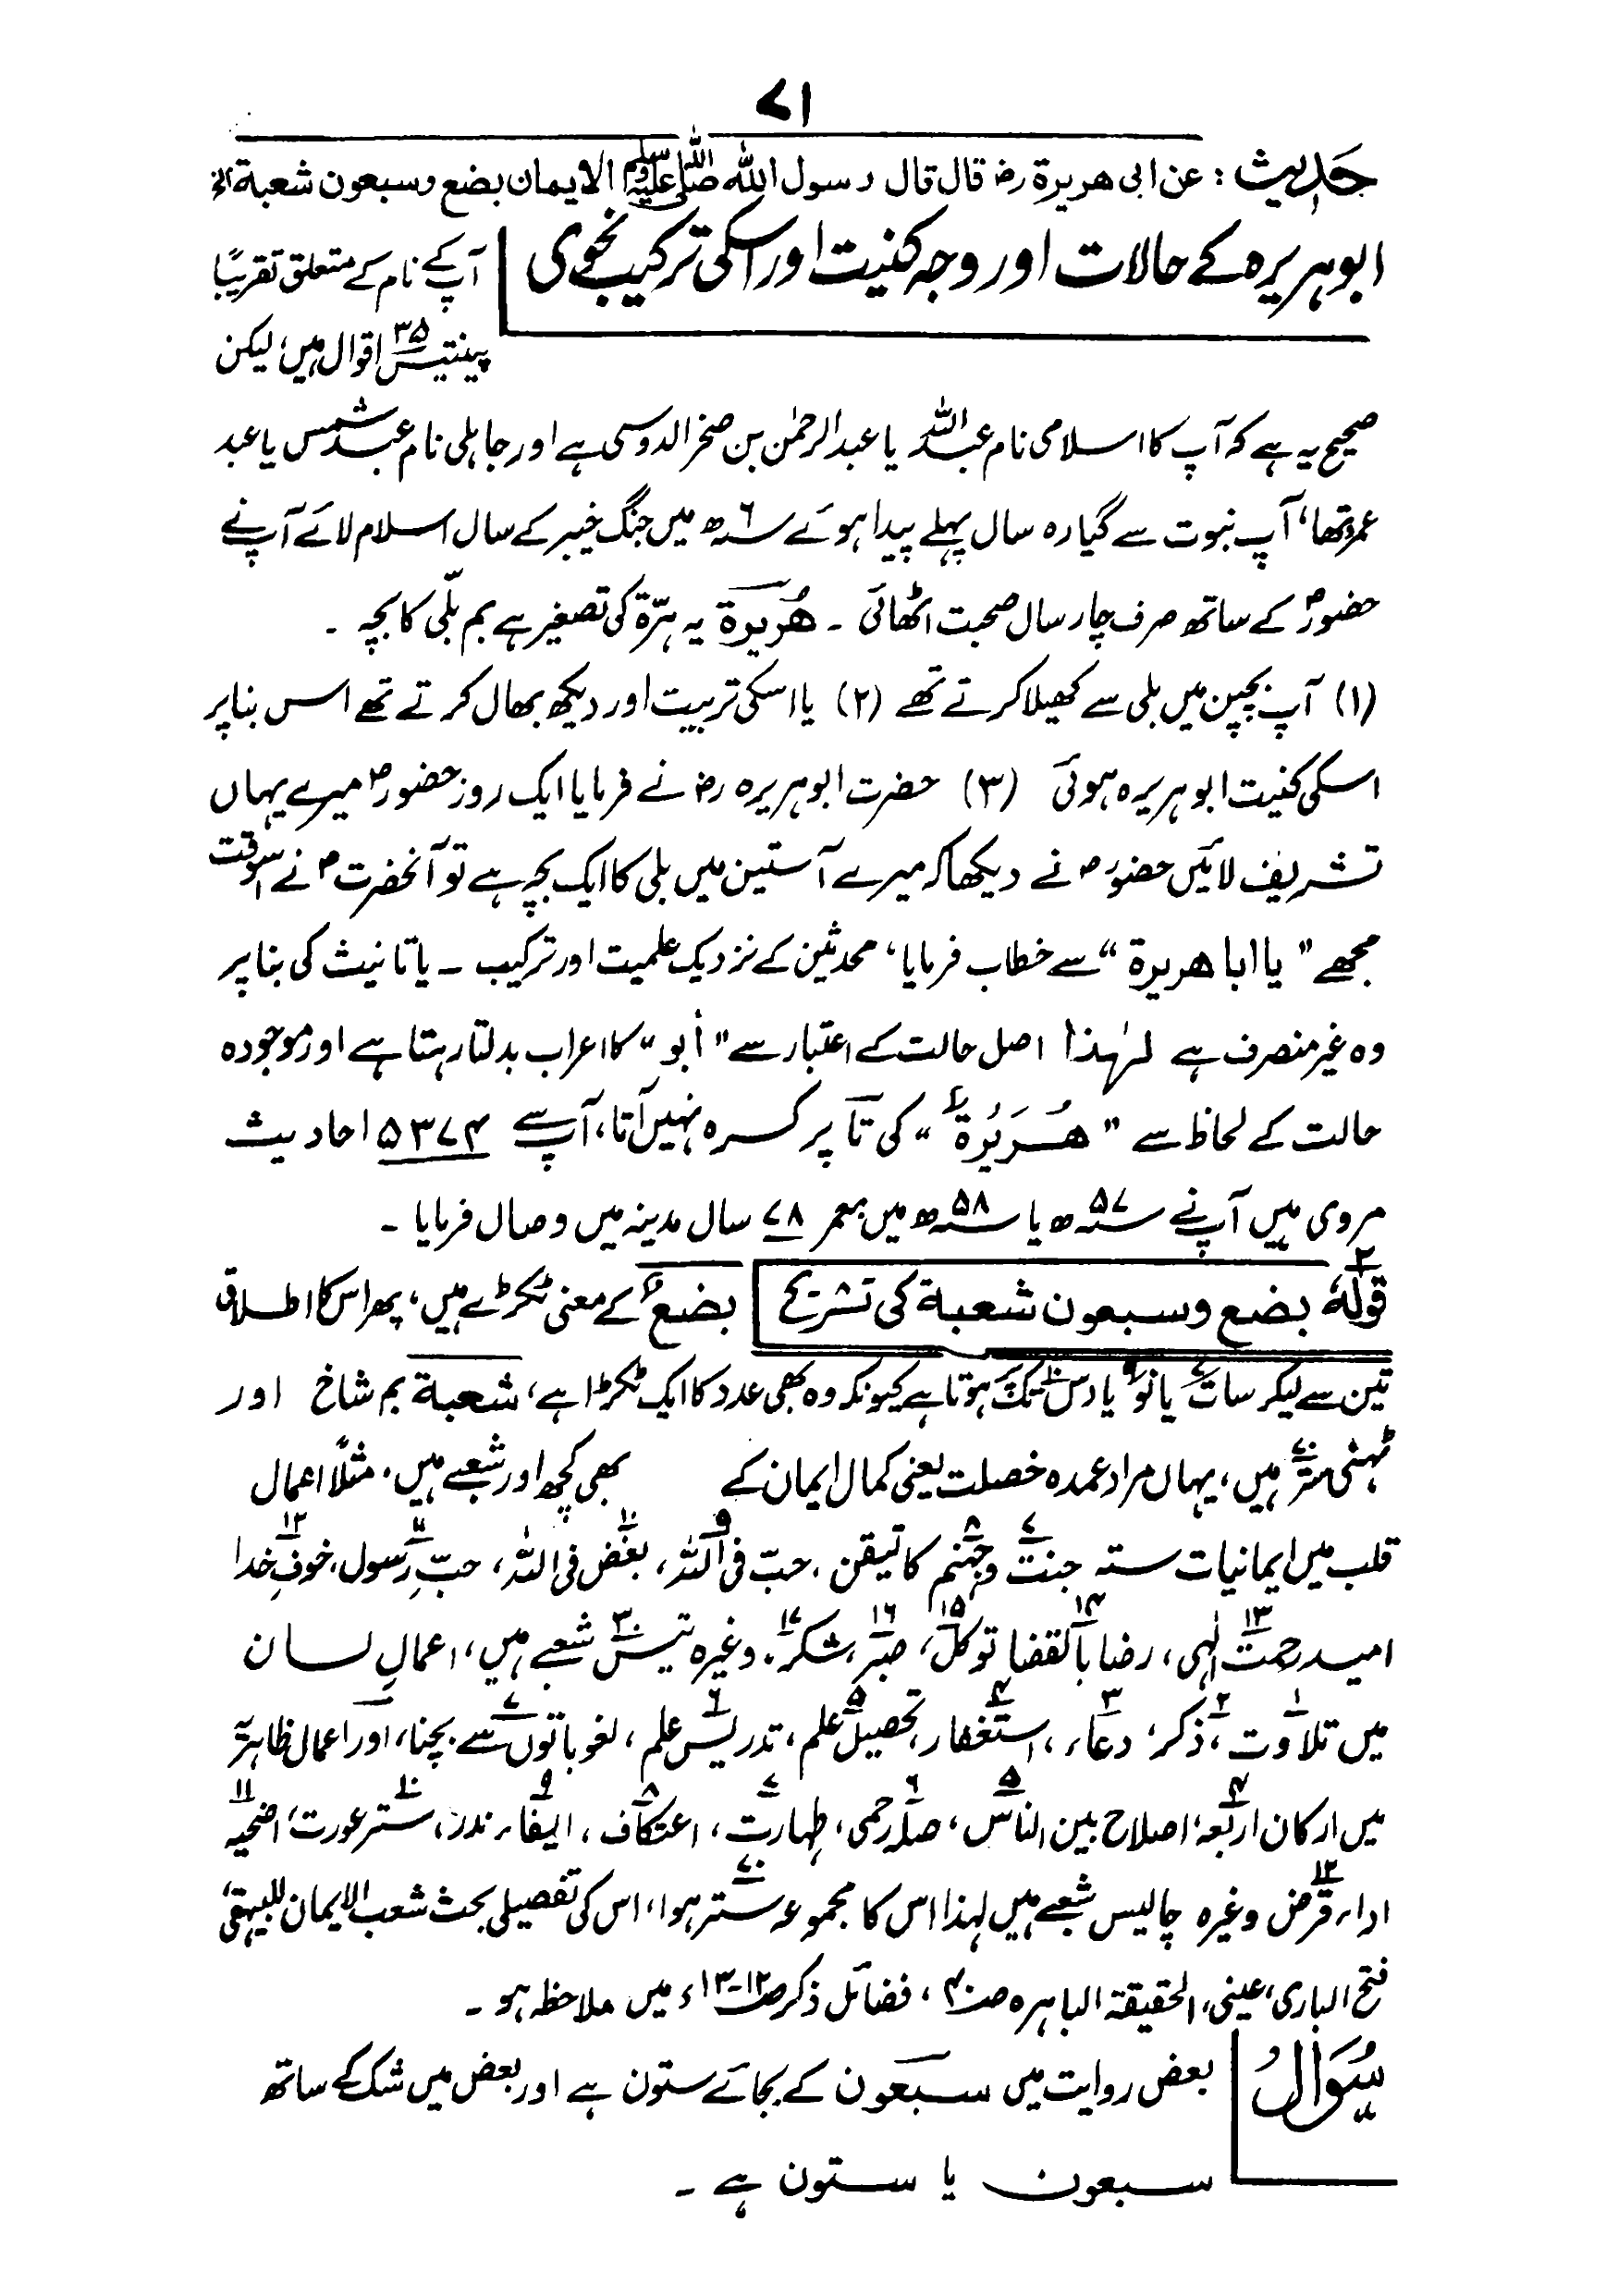 ۷۱
حدیث : عن ابی هریرة رض قال قال رسول الله صلی اللہ علیہ وسلم الایمان بضع وسبعون شعبة الخ
ابو ہریرہ کے حالات اور وجہ کنیت اور اسکی ترکیب نحوی | آپ کے نام کے متعلق تقریبًا
پینتیس ۳۵ اقوال ہیں، لیکن
صحیح یہ ہے کہ آپ کا اسلامی نام عبد اللہ یا عبد الرحمٰن بن صخر الدوسی ہے اور جاہلی نام عبد شمس یا عبد
عمرو تھا، آپ نبوت سے گیارہ سال پہلے پیدا ہوئے سنہ ۶ھ میں جنگ خیبر کے سال اسلام لائے آپ نے
حضورؐ کے ساتھ صرف چار سال صحبت اٹھائی ۔ هُریرة یہ ہرّة کی تصغیر ہے بم بلّی کا بچہ ۔
(۱) آپ بچپن میں بلی سے کھیلا کرتے تھے (۲) یا اسکی تربیت اور دیکھ بھال کرتے تھے اس بنا پر
اسکی کنیت ابو ہریرہ ہوئی (۳) حضرت ابو ہریرہ رض نے فرمایا ایک روز حضورؐ میرے یہاں
تشریف لائیں حضورؐ نے دیکھا کہ میرے آستین میں بلی کا ایک بچہ ہے تو آنحضرت ؐ نے اسوقت
مجھے " یا ابا هریرة " سے خطاب فرمایا، محدثین کے نزدیک علمیت اور ترکیب ۔ یا تانیث کی بنا پر
وہ غیر منصرف ہے لہٰذا اصل حالت کے اعتبار سے " أبو " کا اعراب بدلتا رہتا ہے اور موجودہ
حالت کے لحاظ سے " هُرَیْرَةُ " کی تا پر کسرہ نہیں آتا، آپ سے ۵۳۷۴ احادیث
مروی ہیں آپ نے سنہ ۵۷ھ یا سنہ ۵۸ھ میں بعمر ۷۸ سال مدینہ میں وصال فرمایا ۔
۲ قولہٗ بضع وسبعون شعبة کی تشریح | بضعٌ کے معنی ٹکڑے ہیں، پھر اس کا اطلاق
تین سے لیکر سات ۷ یا نو ۹ یا دس ۱۰ تک ہوتا ہے کیونکہ وہ بھی عدد کا ایک ٹکڑا ہے، شعبة بم شاخ اور
ٹہنی ستر ۷۰ ہیں، یہاں مراد عمدہ خصلت یعنی کمال ایمان کے بھی کچھ اور شعبے ہیں، مثلًا اعمال
قلب میں ایمانیات ستہ جنت ۷ و جہنم ۸ کا تیقن، حبّ فی اللہ ۹، بغض فی اللہ ۱۰، حبّ رسول ۱۱، خوفِ خدا ۱۲
امید رحمت الٰہی ۱۳، رضا بالقضا ۱۴ توکل ۱۵، صبر ۱۶، شکر ۱۷، وغیرہ تیس ۳۰ شعبے ہیں، اعمالِ لسان
میں تلاوت ۱، ذکر ۲، دعاء ۳، استغفار ۴، تحصیل علم ۵، تدریس علم ۶، لغو باتوں سے بچنا ۷، اور اعمال ظاہرہ
میں ارکان اربعہ ۴، اصلاح بین الناس ۵، صلہ رحمی ۶، طہارت ۷، اعتکاف ۸، ایفاء نذر ۹، ستر عورت ۱۰، اضحیہ ۱۱
اداء قرض ۱۲ وغیرہ چالیس شعبے ہیں لہذا اس کا مجموعہ ستر ۷۰ ہوا، اس کی تفصیلی بحث شعب الایمان للبیہقی،
فتح الباری، عینی، الحقیقة الباہرہ صـ ۴۰، فضائل ذکر صـ ۱۲-۱۳ء میں ملاحظہ ہو ۔
سُوَالُ | بعض روایت میں سبعون کے بجائے ستون ہے اور بعض میں شک کے ساتھ
سبعون یا ستون ہے ۔